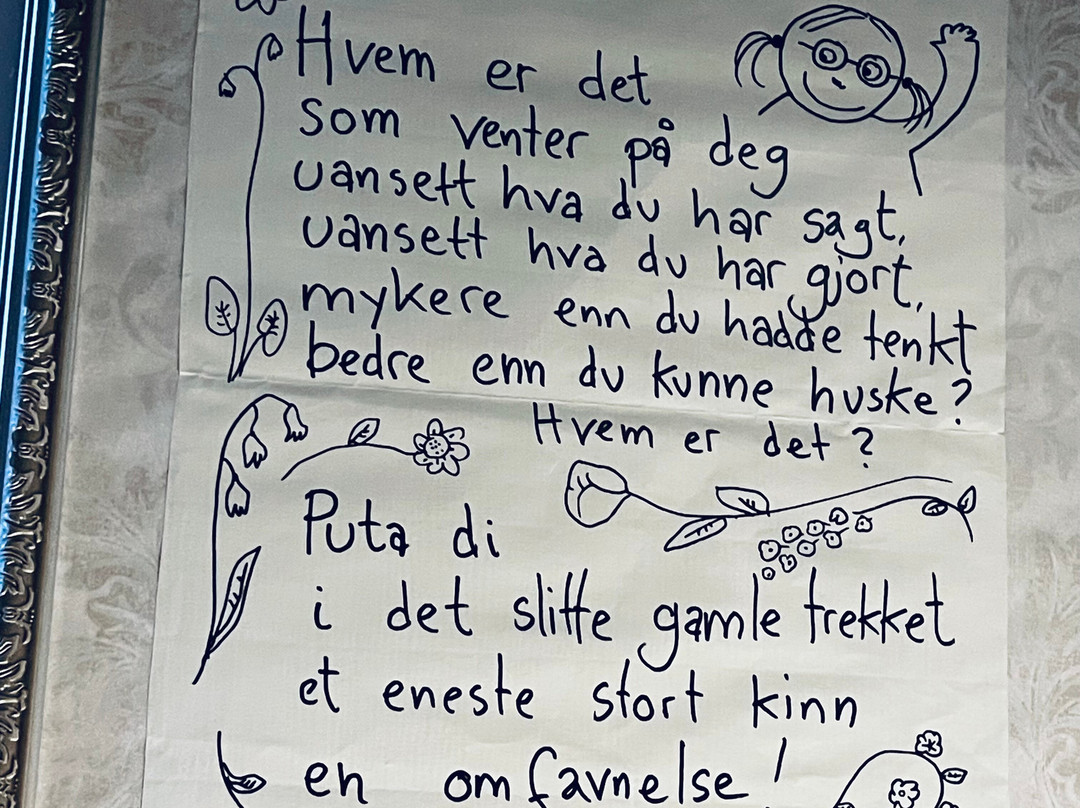 Hvem er det
som venter på deg
uansett hva du har sagt,
uansett hva du har gjort,
mykere enn du hadde tenkt
bedre enn du kunne huske?
Hvem er det?
Puta di
i det slitte gamle trekket
et eneste stort kinn
en omfavnelse!